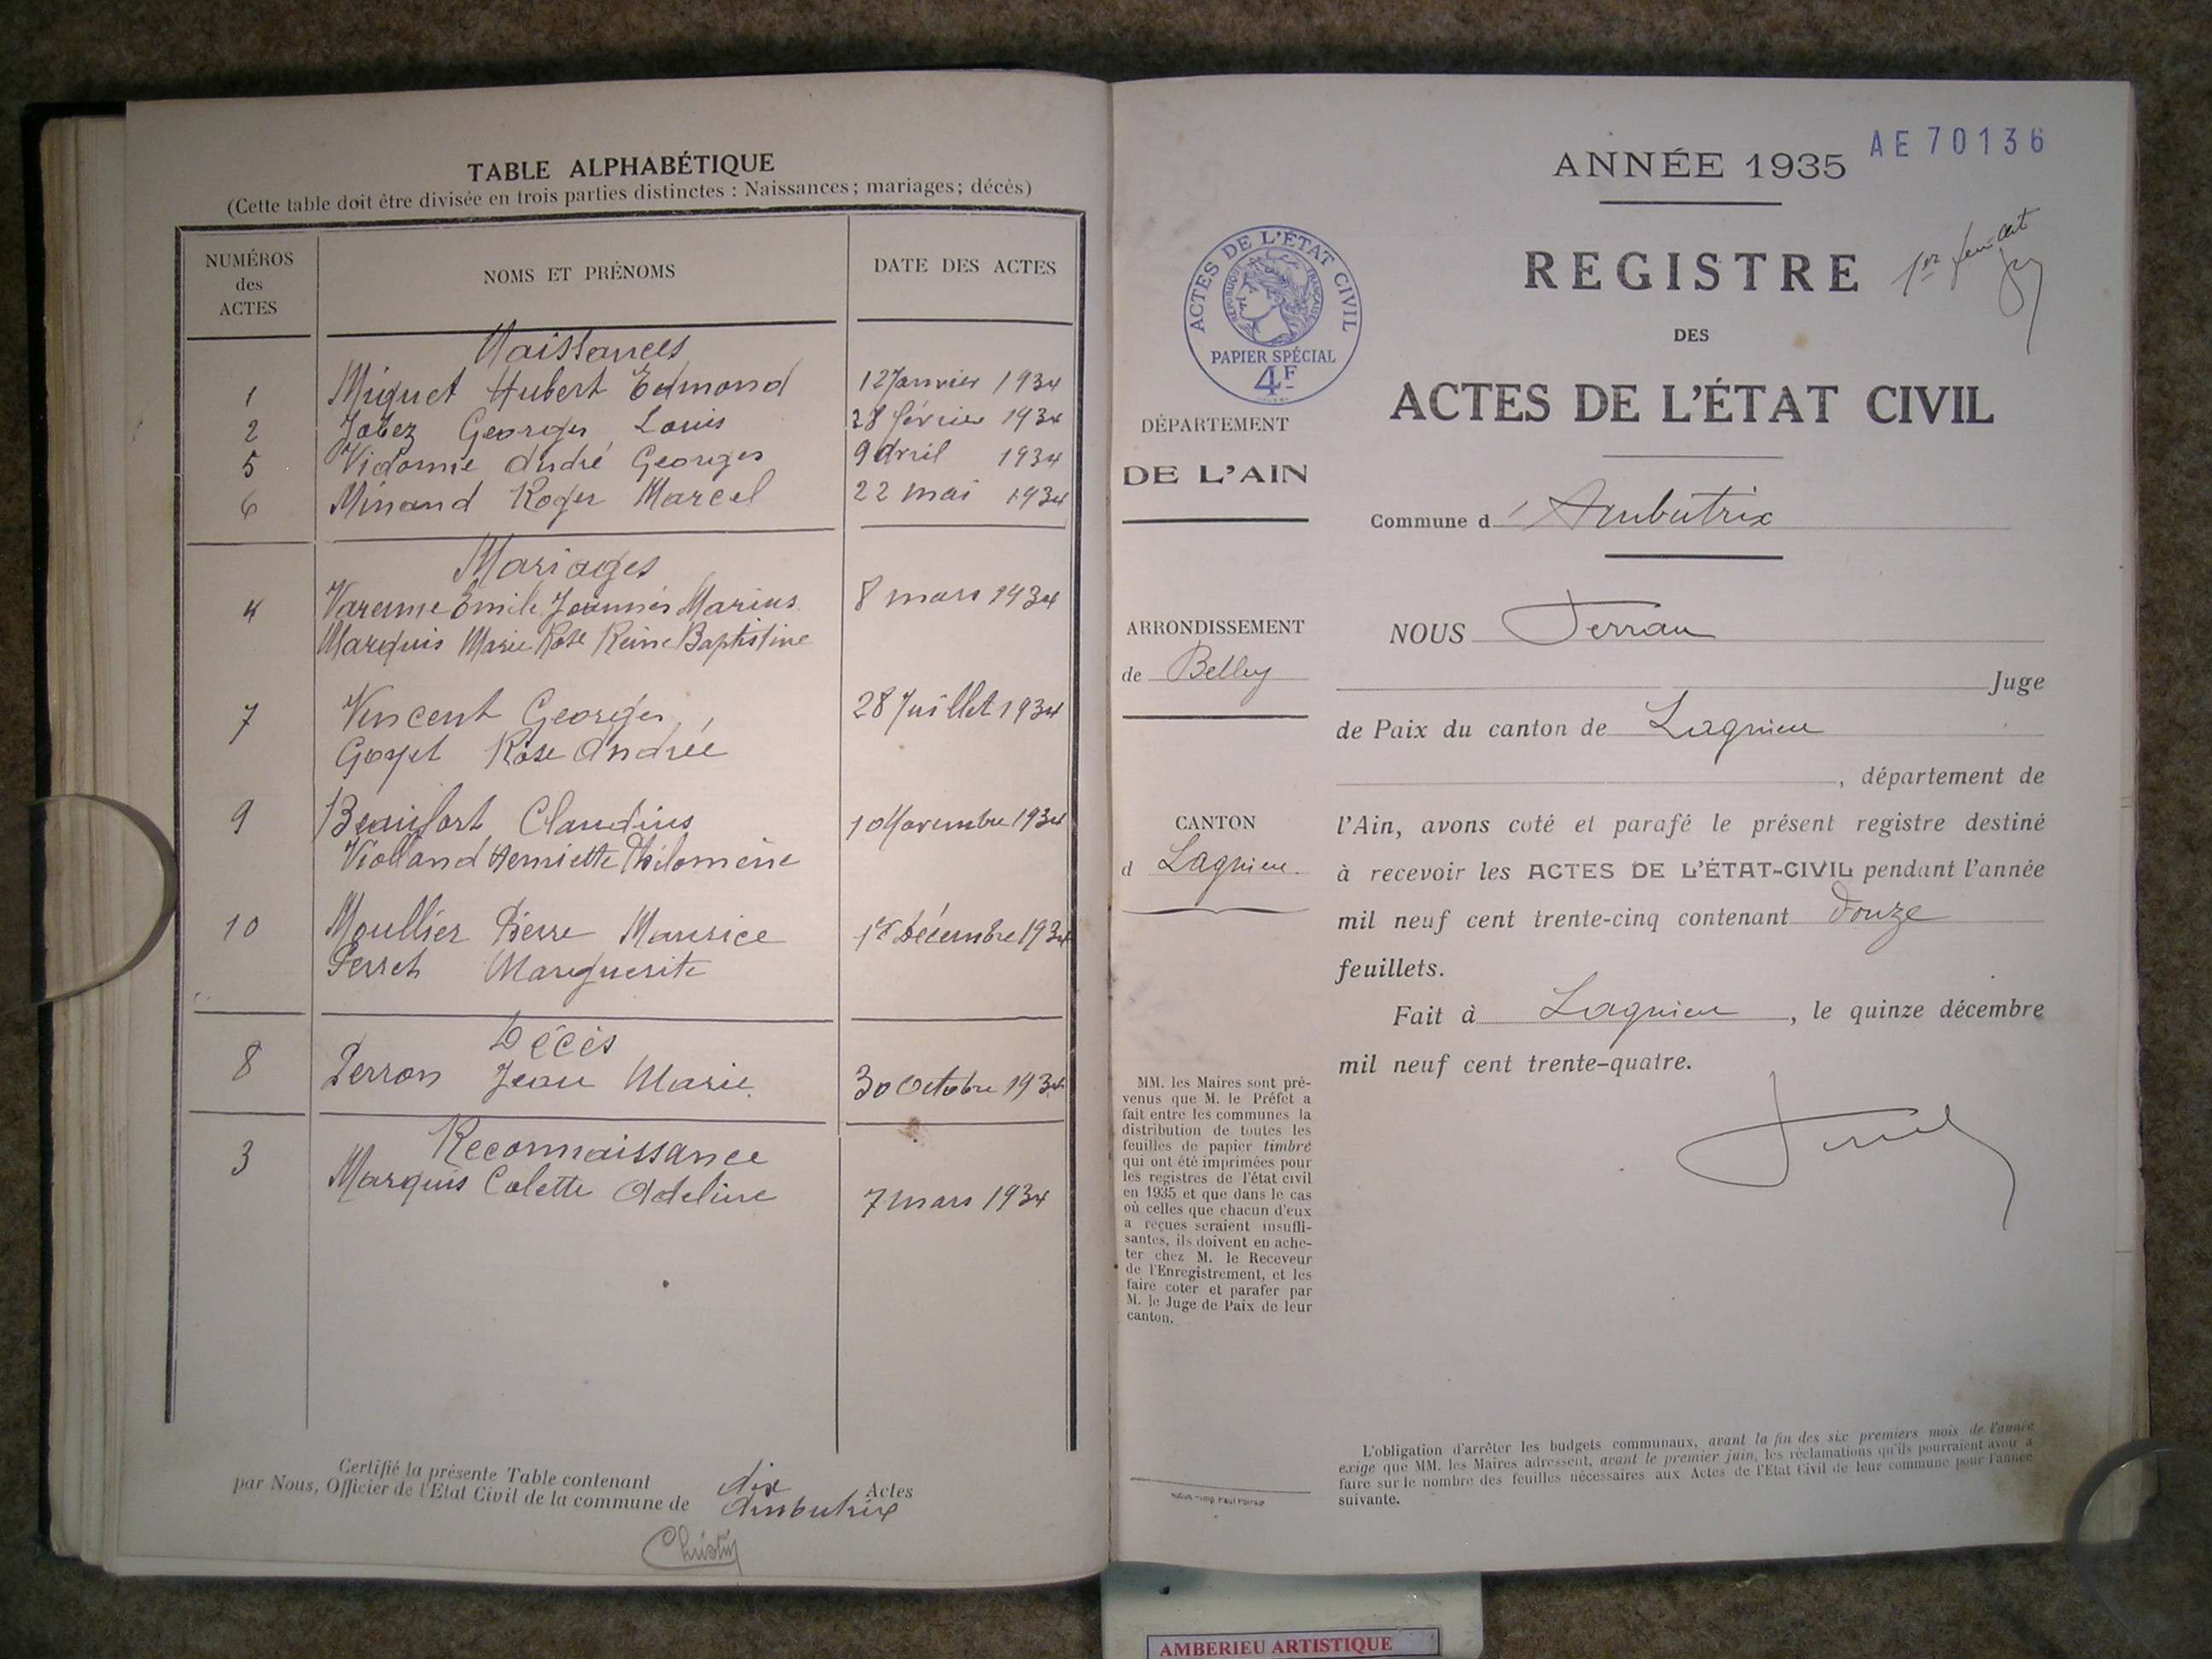 TABLE ALPHABÉTIQUE
(Cette table doit être divisée en trois parties distinctes : Naissances ; mariages ; décès)
NUMÉROS des ACTES NOMS ET PRÉNOMS DATE DES ACTES
Naissances
1 Miguet Hubert Edmond 12 Janvier 1934
2 Jobez Georges Louis 28 février 1934
5 Vidomie André Georges 9 Avril 1934
6 Minand Roger Marcel 22 mai 1934
Mariages
4 Varenne Emile Joannès Marius 8 mars 1934
Marquis Marie Rose Reine Baptistine
7 Vincent Georges 28 Juillet 1934
Goyet Rose Andrée
9 Beaufort Claudius 10 Novembre 1934
Violland Henriette Philomène
10 Moullier Pierre Maurice 1er Décembre 1934
Perret Marguerite
Décès
8 Perron Jean Marie. 30 Octobre 1934
Reconnaissance
3 Marquis Colette Adeline 7 mars 1934
Certifié la présente Table contenant dix Actes
par Nous, Officier de l'Etat Civil de la commune de Ambutrix
AE 70136
ANNÉE 1935
1er feuillet
REGISTRE
DES
ACTES DE L'ÉTAT CIVIL
Commune d'Ambutrix
ACTES DE L'ÉTAT CIVIL
RÉPUBLIQUE FRANÇAISE
PAPIER SPÉCIAL
4F
DÉPARTEMENT
DE L'AIN
ARRONDISSEMENT
de Belley
CANTON
d Lagnieu.
MM. les Maires sont pré-
venus que M. le Préfet a
fait entre les communes la
distribution de toutes les
feuilles de papier timbré
qui ont été imprimées pour
les registres de l'état civil
en 1935 et que dans le cas
où celles que chacun d'eux
a reçues seraient insuffi-
santes, ils doivent en ache-
ter chez M. le Receveur
de l'Enregistrement, et les
faire coter et parafer par
M. le Juge de Paix de leur
canton.
NOUS
Juge
de Paix du canton de Lagnieu
, département de
l'Ain, avons coté et parafé le présent registre destiné
à recevoir les ACTES DE L'ÉTAT-CIVIL pendant l'année
mil neuf cent trente-cinq contenant douze
feuillets.
Fait à Lagnieu, le quinze décembre
mil neuf cent trente-quatre.
L'obligation d'arrêter les budgets communaux, avant la fin des six premiers mois de l'année
exige que MM. les Maires adressent, avant le premier juin, les réclamations qu'ils pourraient avoir à
faire sur le nombre des feuilles nécessaires aux Actes de l'Etat Civil de leur commune pour l'année
suivante.
AMBERIEU ARTISTIQUE